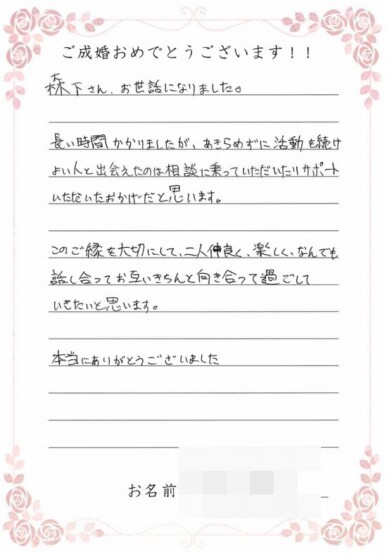 ご成婚おめでとうございます！！
森下さん、お世話になりました。
長い時間かかりましたが、あきらめずに活動を続け
よい人と出会えたのは相談に乗っていただいたりサポート
いただいたおかげだと思います。
このご縁を大切にして、二人仲良く、楽しく、なんでも
話し合ってお互いきちんと向き合って過ごして
いきたいと思います。
本当にありがとうございました
お名前